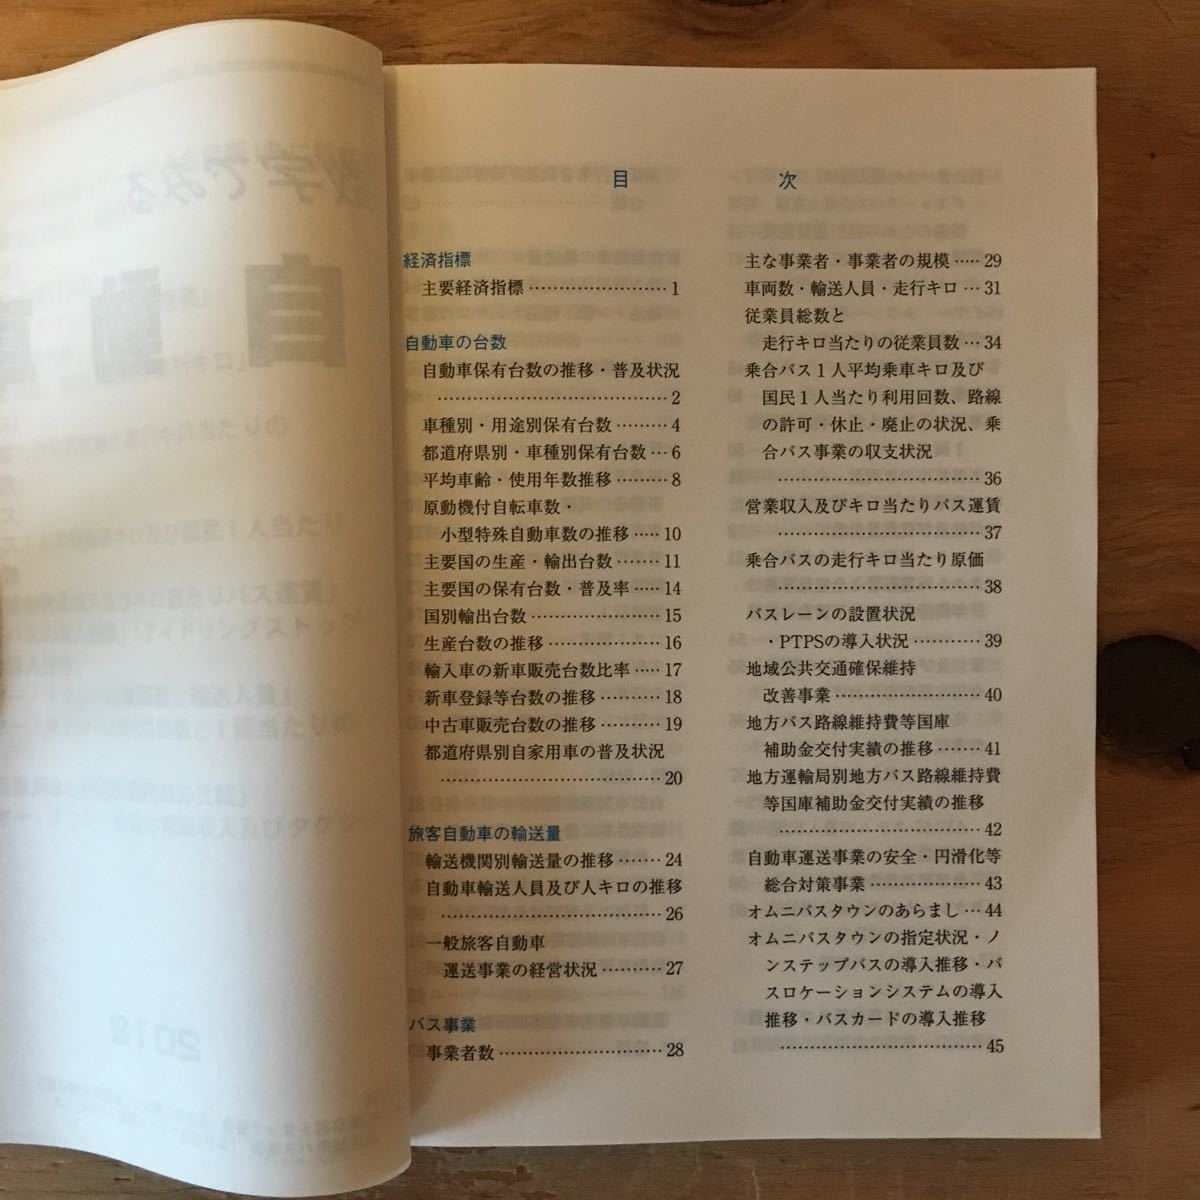 目　次
経済指標
主要経済指標……………………1
自動車の台数
自動車保有台数の推移・普及状況
…………………………………2
車種別・用途別保有台数………4
都道府県別・車種別保有台数…6
平均車齢・使用年数推移………8
原動機付自転車数・
小型特殊自動車数の推移……10
主要国の生産・輸出台数………11
主要国の保有台数・普及率……14
国別輸出台数……………………15
生産台数の推移…………………16
輸入車の新車販売台数比率……17
新車登録等台数の推移…………18
中古車販売台数の推移…………19
都道府県別自家用車の普及状況
…………………………………20
旅客自動車の輸送量
輸送機関別輸送量の推移………24
自動車輸送人員及び人キロの推移
…………………………………26
一般旅客自動車
運送事業の経営状況…………27
バス事業
事業者数…………………………28
主な事業者・事業者の規模……29
車両数・輸送人員・走行キロ…31
従業員総数と
走行キロ当たりの従業員数…34
乗合バス１人平均乗車キロ及び
国民１人当たり利用回数、路線
の許可・休止・廃止の状況、乗
合バス事業の収支状況
………………………………36
営業収入及びキロ当たりバス運賃
………………………………37
乗合バスの走行キロ当たり原価
………………………………38
バスレーンの設置状況
・PTPSの導入状況…………39
地域公共交通確保維持
改善事業……………………40
地方バス路線維持費等国庫
補助金交付実績の推移………41
地方運輸局別地方バス路線維持費
等国庫補助金交付実績の推移
………………………………42
自動車運送事業の安全・円滑化等
総合対策事業…………………43
オムニバスタウンのあらまし…44
オムニバスタウンの指定状況・ノ
ンステップバスの導入推移・バ
スロケーションシステムの導入
推移・バスカードの導入推移
………………………………45